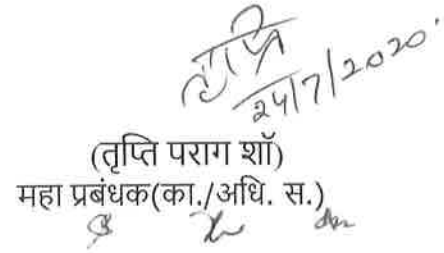 तृप्ति
24/7/2020
(तृप्ति पराग शॉ)
महा प्रबंधक(का./अधि. स.)